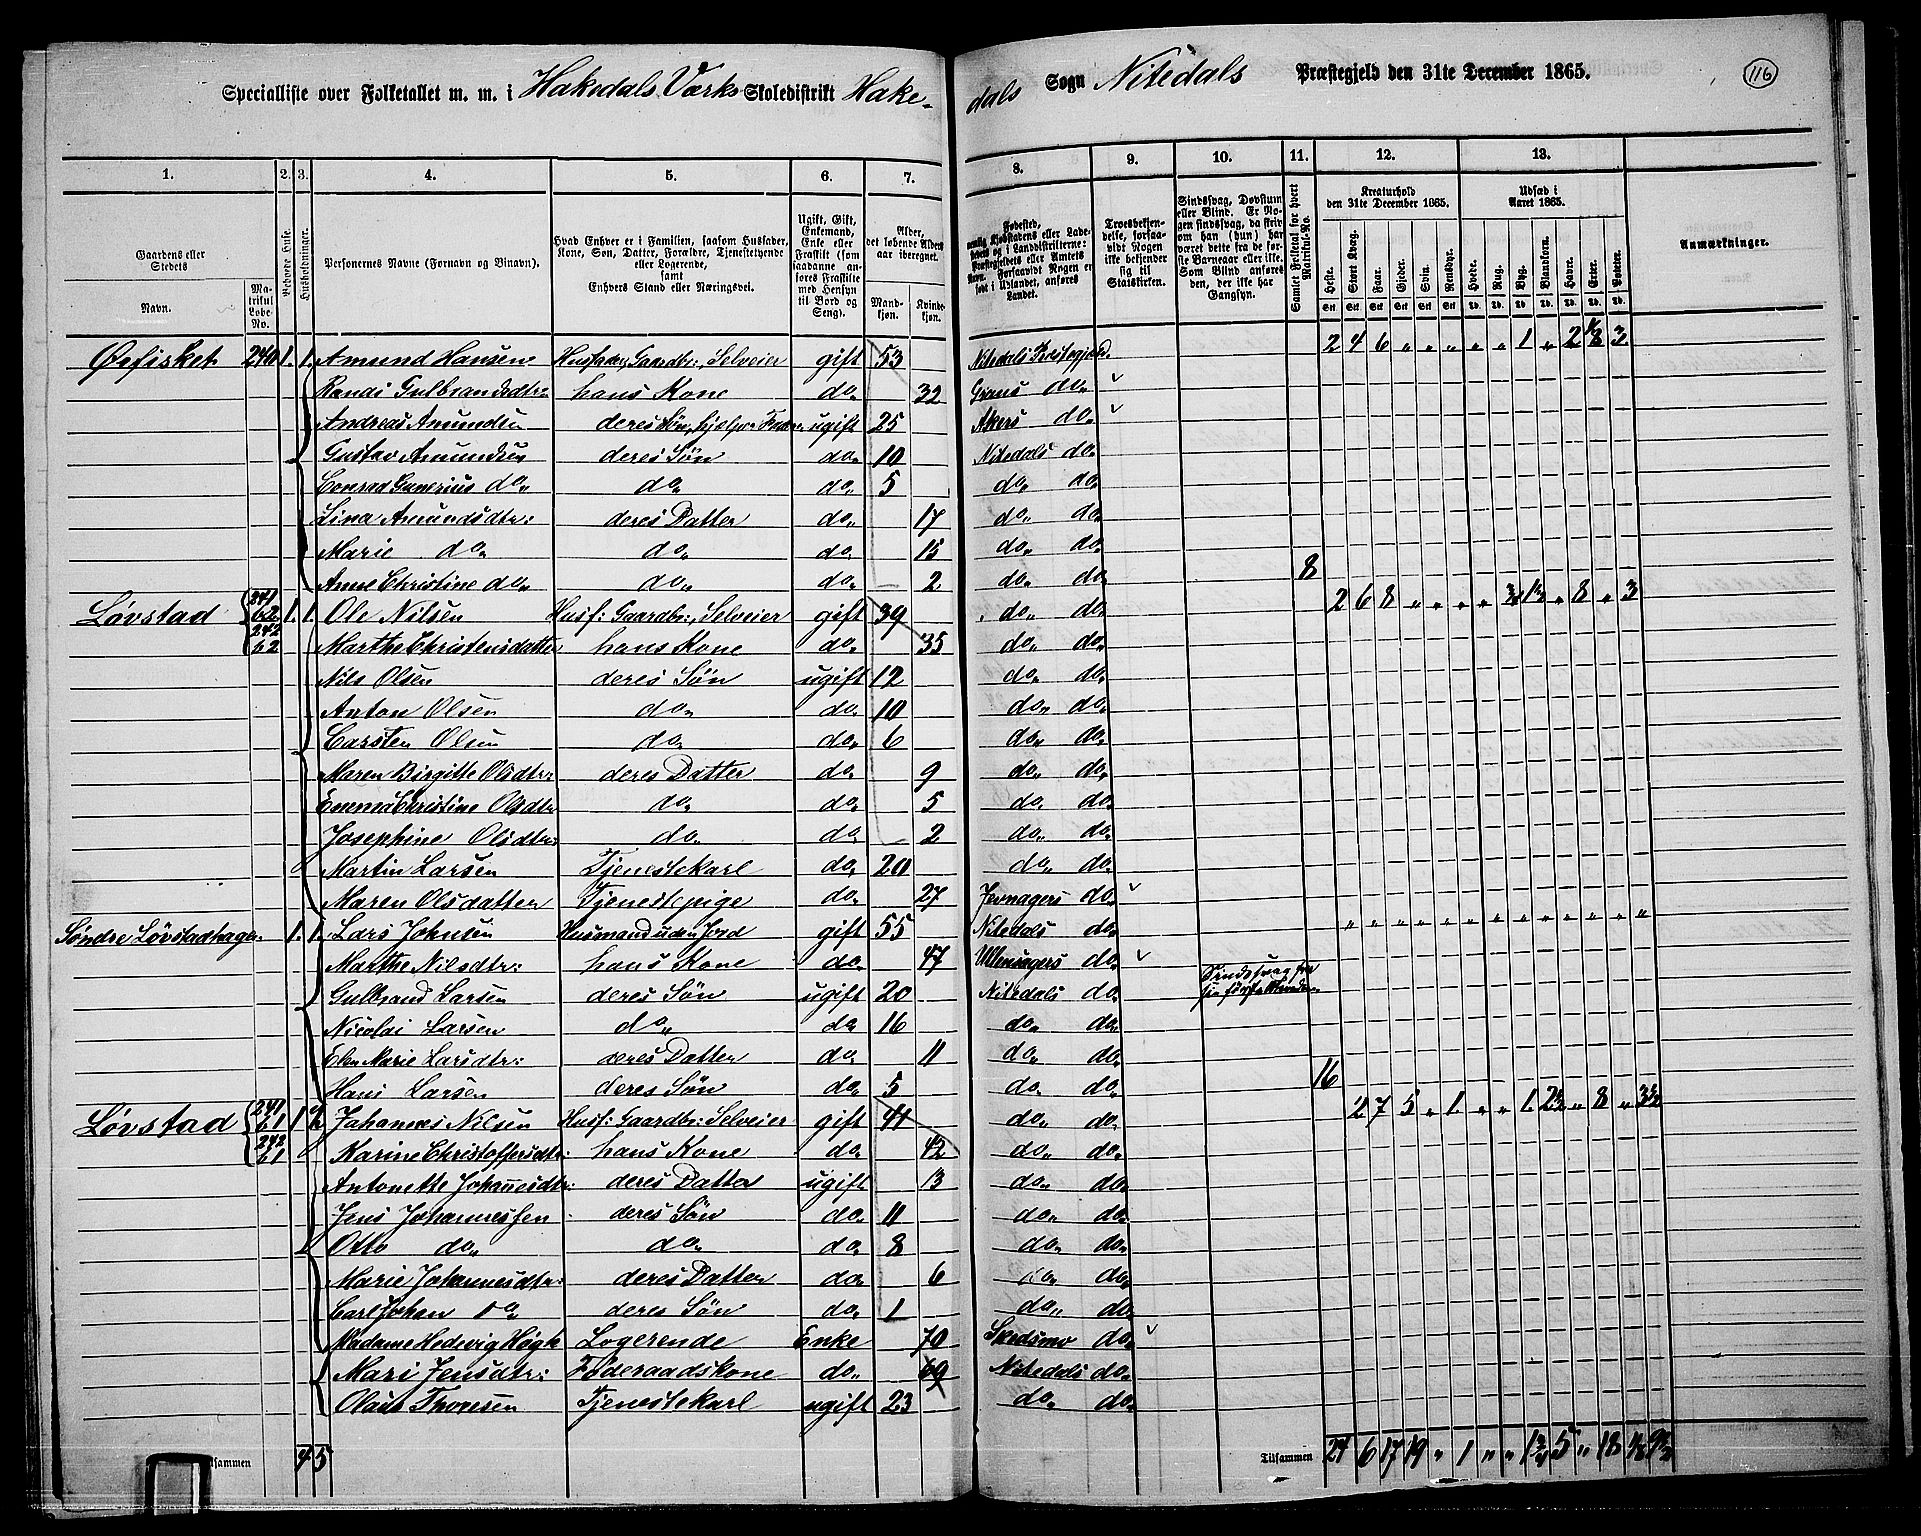 116
Specialliste over Folketallet m. m. i Hakedals Værks Skoledistrikt Hakedals Sogn Nitedals Præstegjeld den 31te December 1865.
1. 2. 3. 4. 5. 6. 7. 8. 9. 10. 11. 12. 13.
Gaardens eller Stedets Navn. Matrikul Løbe-No. Beboede Huse. Husholdninger. Personernes Navne (Fornavn og Binavn). Hvad Enhver er i Familien, saasom Husfader, Kone, Søn, Datter, Forældre, Tjenestetyende eller Logerende, samt Enhvers Stand eller Næringsvei. Ugift, Gift, Enkemand, Enke eller Fraskilt (som saadanne anføres Fraskilte med Hensyn til Bord og Seng). Alder, det løbende Alders aar iberegnet. Mandkjøn. Kvindekjøn.
Troesbekjendelse, forsaavidt Nogen ikke bekjender sig til Statskirken. Samlet Folketal for hvert Matrikul-No. Kreaturhold den 31te December 1865. Heste. Stort Kvæg. Faar. Gjeder. Svin. Rensdyr. Udsæd i Aaret 1865. Hvede. Rug. Byg. Blandkorn. Havre. Erter. Poteter. Anmærkninger.
Øefisket 240 1. 1. Amund Hansen Husfader, Gaardbr:, Selveier gift 53 Nitedals Præstegjeld 2 4 6 „ „ „ „ „ 1 „ 2 1/8 3
Randi Gulbrandsdtr: hans Kone do. 32 Grans do.
Andreas Amundsen deres Søn, hjelper Faderen ugift 25 Akers do.
Gustav Amundsen deres Søn do. 10 Nitedals do.
Conrad Gunerius do. do. do. 5 do. do.
Lina Amundsdtr: deres Datter do. 17 do. do.
Marie do. do. do. 15 do. do.
Anne Christine do. do. do. 2 do. do. 8
Løvstad 241 62 242 62 1. 1. Ole Nilsen Husf: Gaardbr:, Selveier gift 39 do. do. 2 6 8 „ „ „ „ 3/4 1 1/2 „ 8 „ 3
Marthe Christensdatter hans Kone do. 35 do. do.
Nils Olsen deres Søn ugift 12 do. do.
Anton Olsen do. do. 10 do. do.
Carsten Olsen do. do. 6 do. do.
Maren Birgitte Olsdtr: deres Datter do. 9 do. do.
Christine Olsdtr do. do. 5 do. do.
Josephine Olsdtr: do. do. 2 do. do.
Martin Larsen Tjenestekarl do. 20 do. do.
Maren Olsdatter Tjenestepige do. 27 Jevnagers do.
Søndre Løvstadhagen 1. 1. Lars Johnsen Husmand uden Jord gift 55 Nitedals do. „ „ „ „ „ „ „ „ „ „ „ „ „
Marthe Nilsdtr: hans Kone do. 47 Ullensagers do.
Gulbrand Larsen deres Søn ugift 20 Nitedals do. Sindssvag fra
Nicolai Larsen do. do. 16 do. do.
Elen Marie Larsdtr: deres Datter do. 11 do. do.
Hans Larsen deres Søn do. 5 do. do. 16
Løvstad 241 61 242 61 1 Johannes Nilsen Husf: Gaardbr: Selveier gift 41 do. do. 2 7 5 „ 1 „ „ 1 2 1/2 „ 8 „ 3 1/2
Karine Christoffersdtr: hans Kone do. 42 do. do.
Antonette Johannesdtr: deres Datter ugift 13 do. do.
Jens Johannessen deres Søn do. 11 do. do.
Otto do. do. do. 8 do. do.
Marie Johannesdtr: deres Datter do. 6 do. do.
Carl Johan do deres Søn do. 1 do. do.
Madame Hedevig Høgh Logerende Enke 70 Skedsmo do.
Mari Jensdtr: Føderaadskone do. 69 Nitedals do.
Olaus Thoresen Tjenestekarl ugift 23 do. do.
Tilsammen 4 5 Tilsammen 24 6 17 19 „ 1 „ „ 1 3/4 5 „ 18 1/8 9 1/2